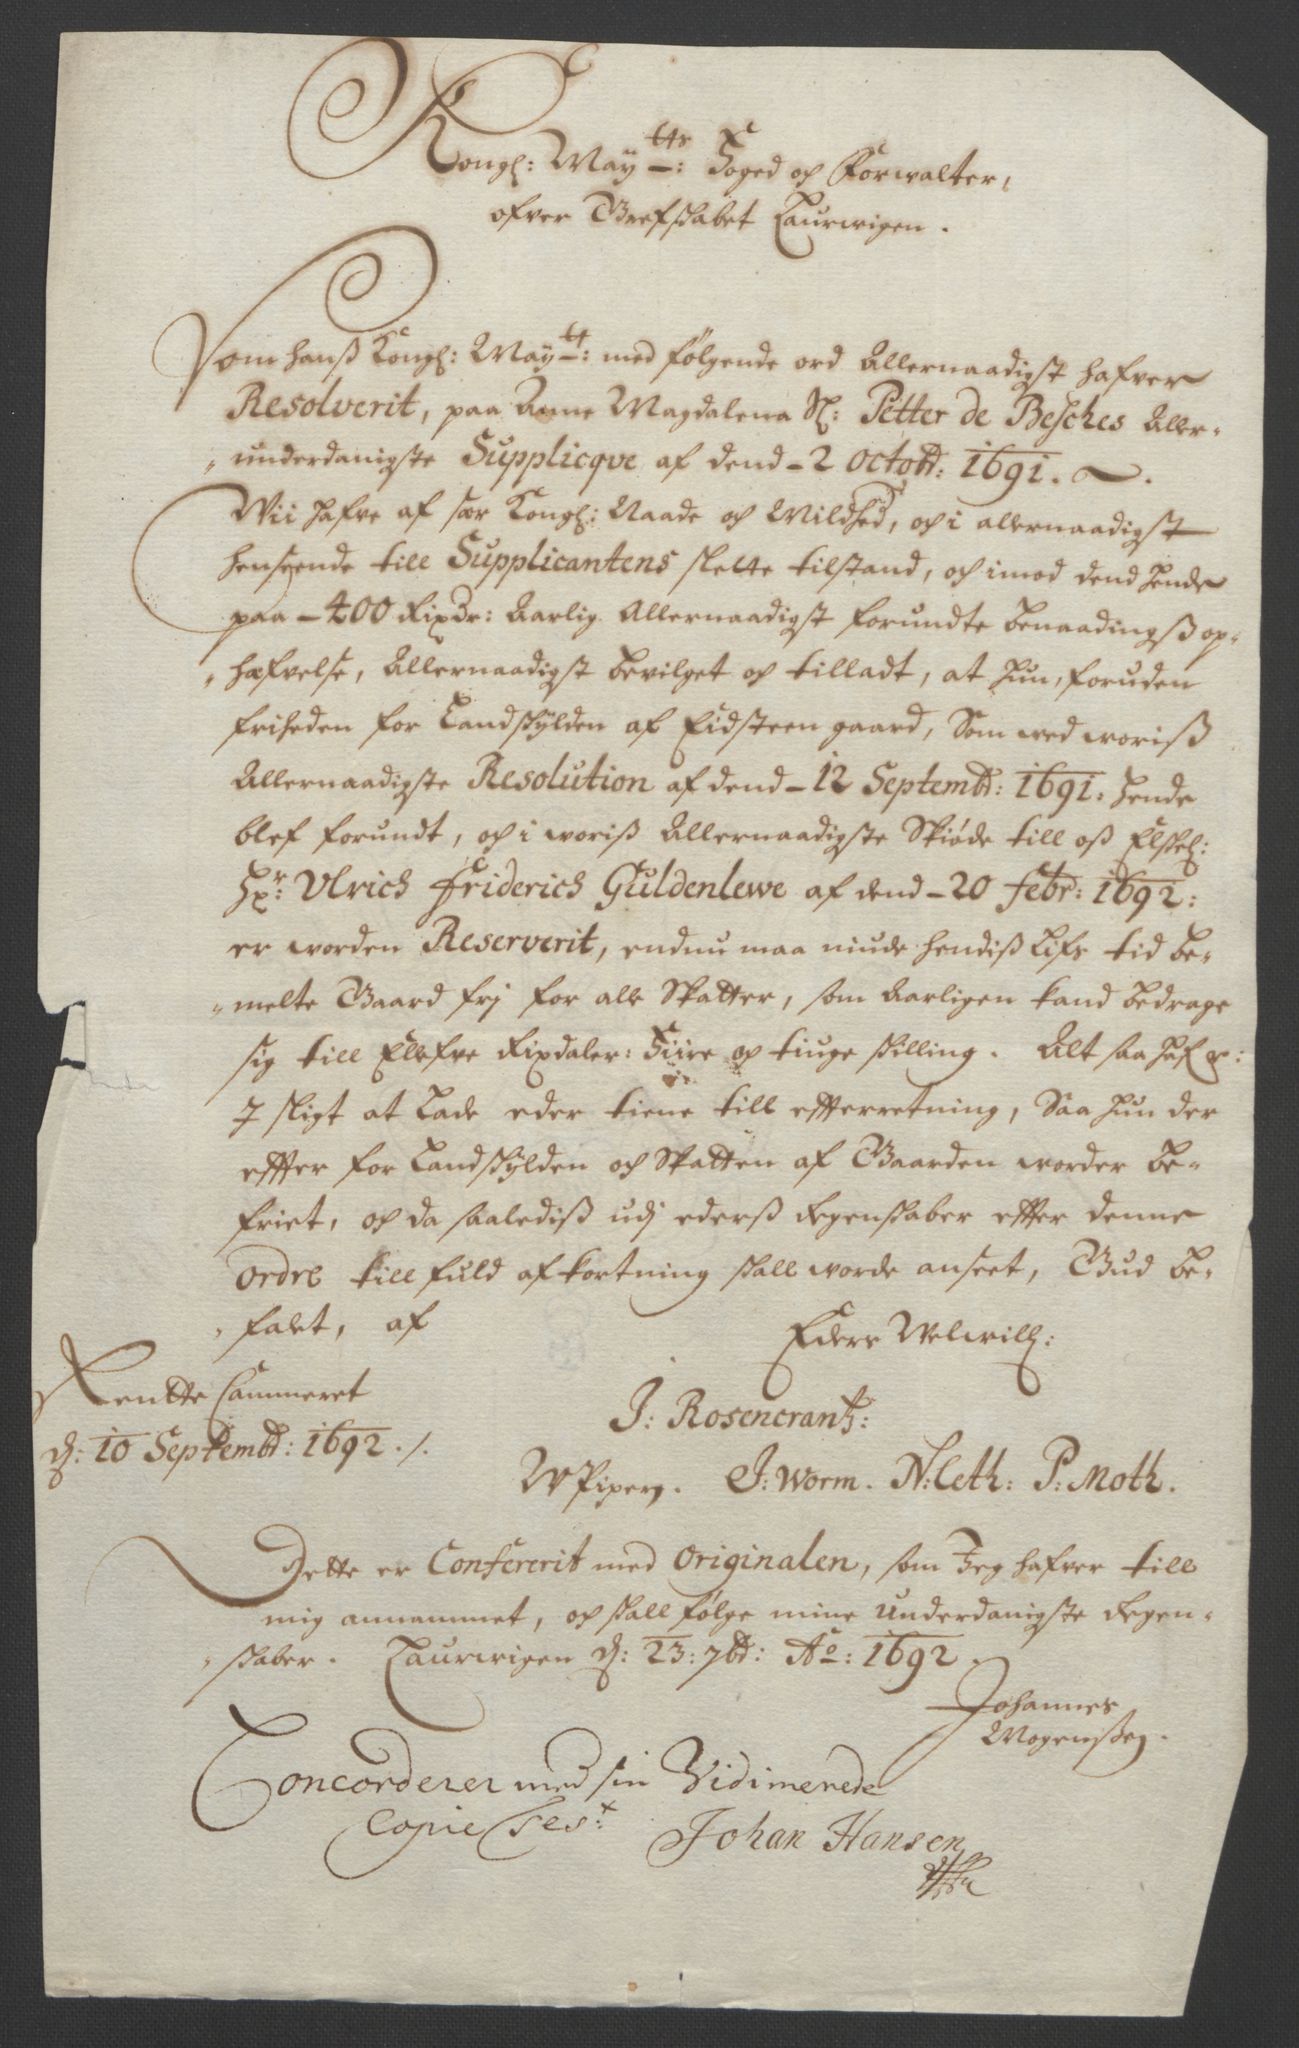 Kongl: May^tts: Foged och Forvalter,
ofver Grefskabet Laurwigen.
Som hanß Kongl: May^tt: med følgende ord Allernaadigst hafver
Resolverit, paa Anne Magdalena Sl: Petter de Besches Aller-
underdanigste Supplicqve af dend - 2 Octobr: 1691.
Wii hafve af sær Kongl: Naade och Mildhed, och i allernaadigst
henseende till Supplicantens slette tilstand, och imod dend hende
paa - 400 Rixdr: Aarlig Allernaadigst forundte benaadingß op-
hæfvelse, Allernaadigst bevilget och tilladt, at hun, foruden
friheden for Landskylden af Eidsteen gaard, Som ved woriß
Allernaadigste Resolution af dend - 12 Septembr: 1691: hende
blef forundt, och i woriß Allernaadigste Skiøde till oß Elskel:
Hr: Ulrich Friderich Guldenlewe af dend - 20 Febr: 1692:
er worden Reserverit, endnu maa niude hendiß Lifs tid be-
melte Gaard frj for alle Skatter, som Aarligen kand bedrage
sig till Ellefve Rixdaler: Fiire og tiuge skilling. Alt saa haf
I sligt at Lade eder tiene till efterretning, Saa hun der
effter for Landskylden och Skatten af Gaarden worder be-
friet, og da saalediß udj ederß Regenskaber effter denne
Ordre till fuld afkortning skall worde anseet, Gud be-
falet, af
Eders Welwill:
Rentte Cammeret
d: 10 Septembr: 1692 ./.
J: Rosencrantz:
W Piper. J: Worm. N: Leth: P: Moth.
Dette er Confererit med Originalen, som Jeg hafver till
mig annammet, og skall følge mine Underdanigste Regen-
skaber. Laurwigen d: 23: 7br: Ao: 1692.
Johannes
Mogensßen.
Concorderer med sin Vidimerede
Copie Test:
Johan Hansen